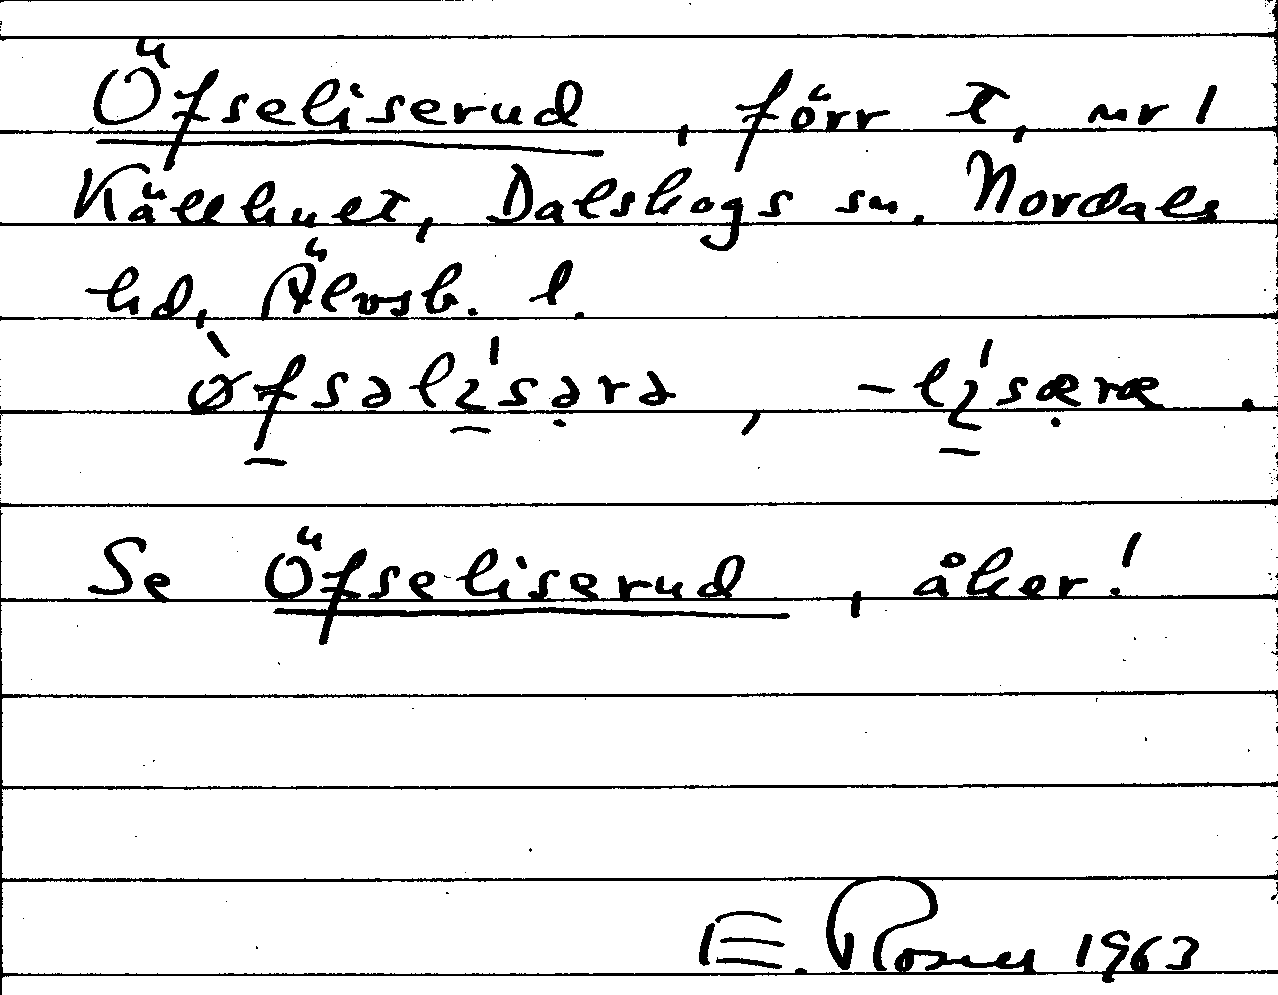 Öfseliserud, förr t, nr 1
Källhult, Dalskogs sn. Nordals
hd, Älvsb. l.
̀øfsəlɩ̲'sə̣rə, -lɩ̲'sæ̣ræ.
Se Öfseliserud, åker!
E. Rosell 1963